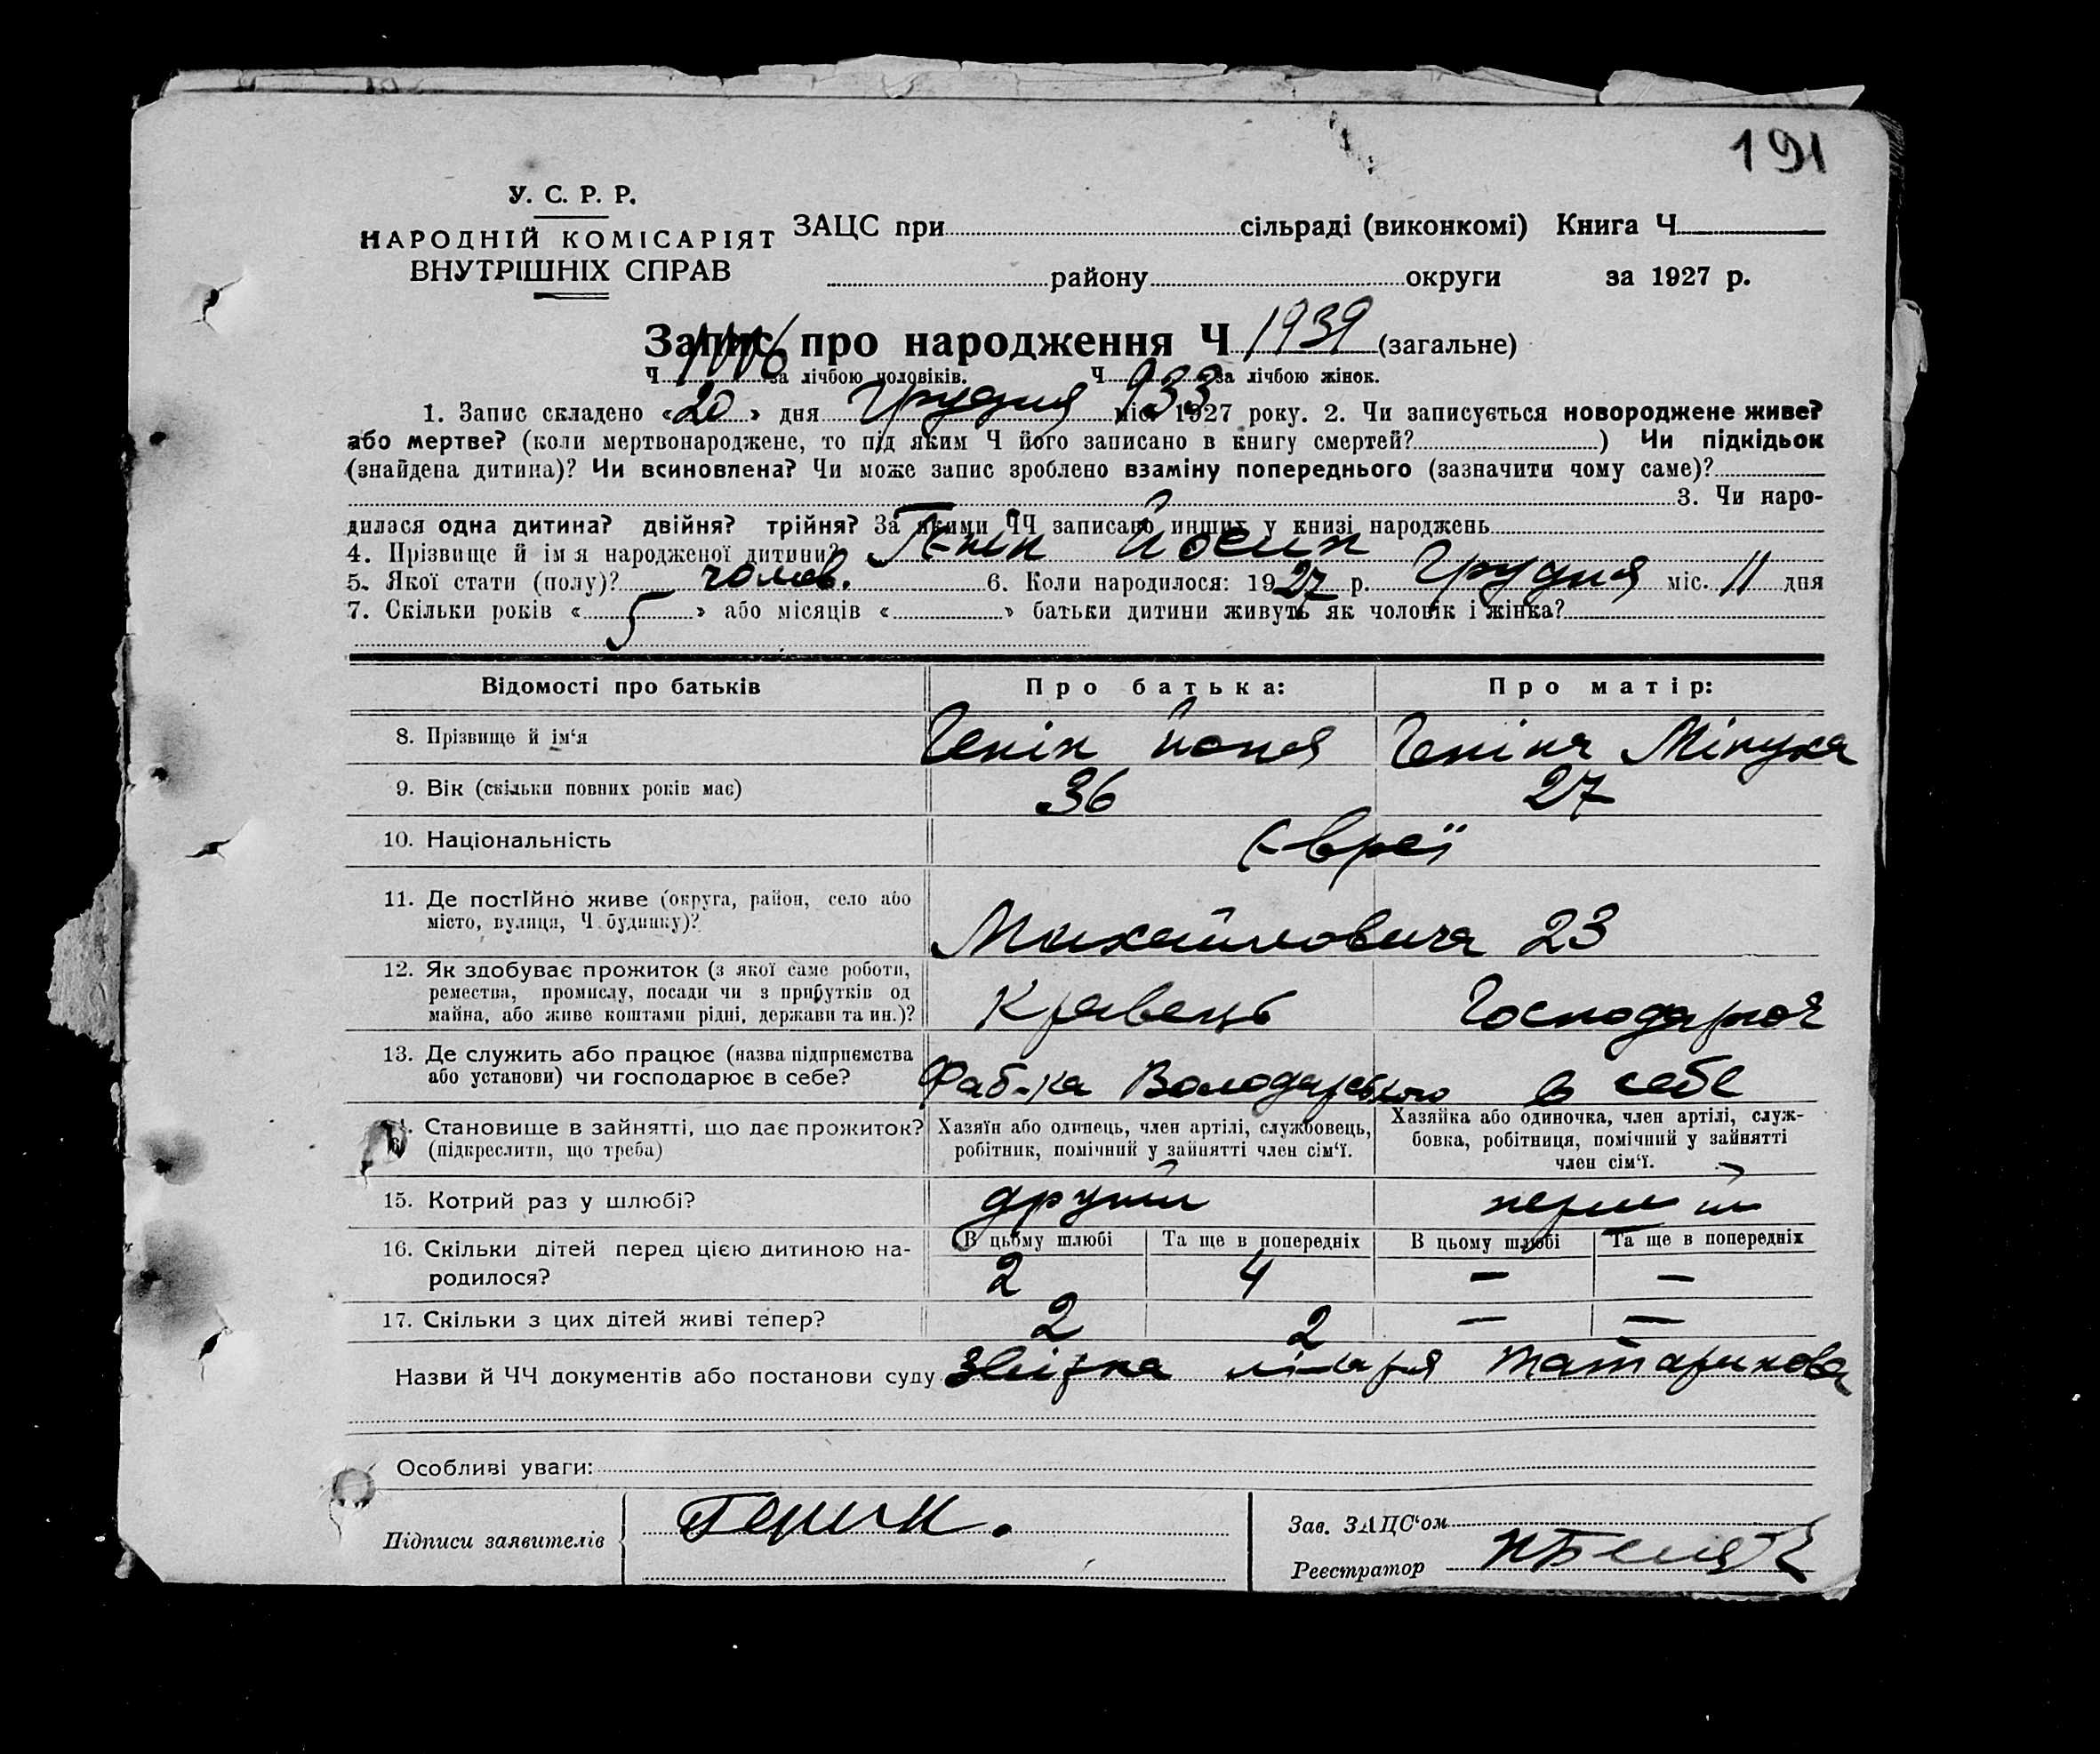 191
У. С. Р. Р.
НАРОДНІЙ КОМІСАРІЯТ
ВНУТРІШНІХ СПРАВ
ЗАЦС при сільраді (виконкомі) Книга Ч
району округи за 1927 р.
Запис про народження Ч 1939 (загальне)
Ч 1006 за лічбою чоловіків. Ч 933 за лічбою жінок.
1. Запис складено «20» дня Грудня міс. 1927 року. 2. Чи записується новороджене живе?
або мертве? (коли мертвонароджене, то під яким Ч його записано в книгу смертей? ) Чи підкідьок
(знайдена дитина)? Чи всиновлена? Чи може запис зроблено взаміну попереднього (зазначити чому саме)?
3. Чи наро-
дилася одна дитина? двійня? трійня? За якими ЧЧ записано инших у книзі народжень
4. Прізвище й ім'я народженої дитини? Генік Йосип
5. Якої стати (полу)? чолов. 6. Коли народилося: 1927 р. Грудня міс. 11 дня
7. Скільки років «5» або місяців « » батьки дитини живуть як чоловік і жінка?
Відомості про батьків Про батька: Про матір:
8. Прізвище й ім‘я Генік Йоня Геніна
9. Вік (скільки повних років має) 36 27
10. Національність Євреї
11. Де постійно живе (округа, район, село або
місто, вулиця, Ч будинку)? Михайловича 23
12. Як здобуває прожиток (з якої саме роботи,
ремества, промислу, посади чи з прибутків од
майна, або живе коштами рідні, держави та ин.)? Кравець Господарює
13. Де служить або працює (назва підприємства
або установи) чи господарює в себе? Фаб-ка Володарського в себе
14. Становище в зайнятті, що дає прожиток?
(підкреслити, що треба)
Хазяїн або одинець, член артілі, службовець,
робітник, помічний у зайнятті член сім‘ї.
Хазяйка або одиночка, член артілі, служ-
бовка, робітниця, помічний у зайнятті
член сім‘ї.
15. Котрий раз у шлюбі? другий перший
В цьому шлюбі Та ще в попередніх В цьому шлюбі Та ще в попередніх
16. Скільки дітей перед цією дитиною на-
родилося? 2 4 — —
17. Скільки з цих дітей живі тепер? 2 2 — —
Назви й ЧЧ документів або постанови суду лікаря Татарикова
Особливі уваги:
Підписи заявителів
Зав. ЗАЦС‘ом
Реєстратор